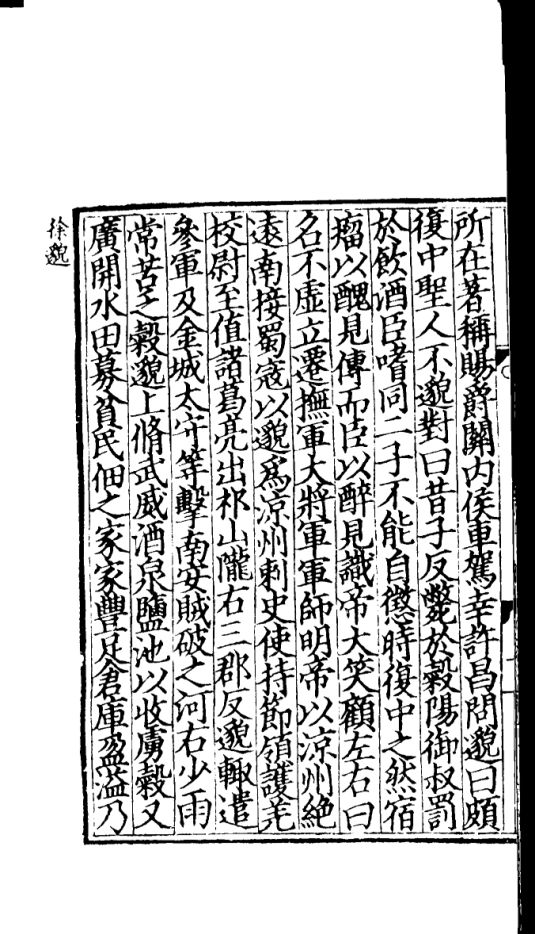 所在著稱賜爵關内侯車駕幸許昌問邈曰頗
復中聖人不邈對曰昔子反斃於穀陽御叔罰
於飲酒臣嗜同二子不能自懲時復中之然宿
瘤以醜見傳而臣以醉見識帝大笑顧左右曰
名不虛立遷撫軍大將軍軍師明帝以涼州絶
遠南接蜀寇以邈爲涼州刺史使持節領護羌
校尉至值諸葛亮出祁山隴右三郡反邈輙遣
參軍及金城太守等擊南安賊破之河右少雨
常苦乏穀邈上脩武威酒泉鹽池以收虜穀又
廣開水田募貧民佃之家家豐足倉庫盈溢乃
徐邈